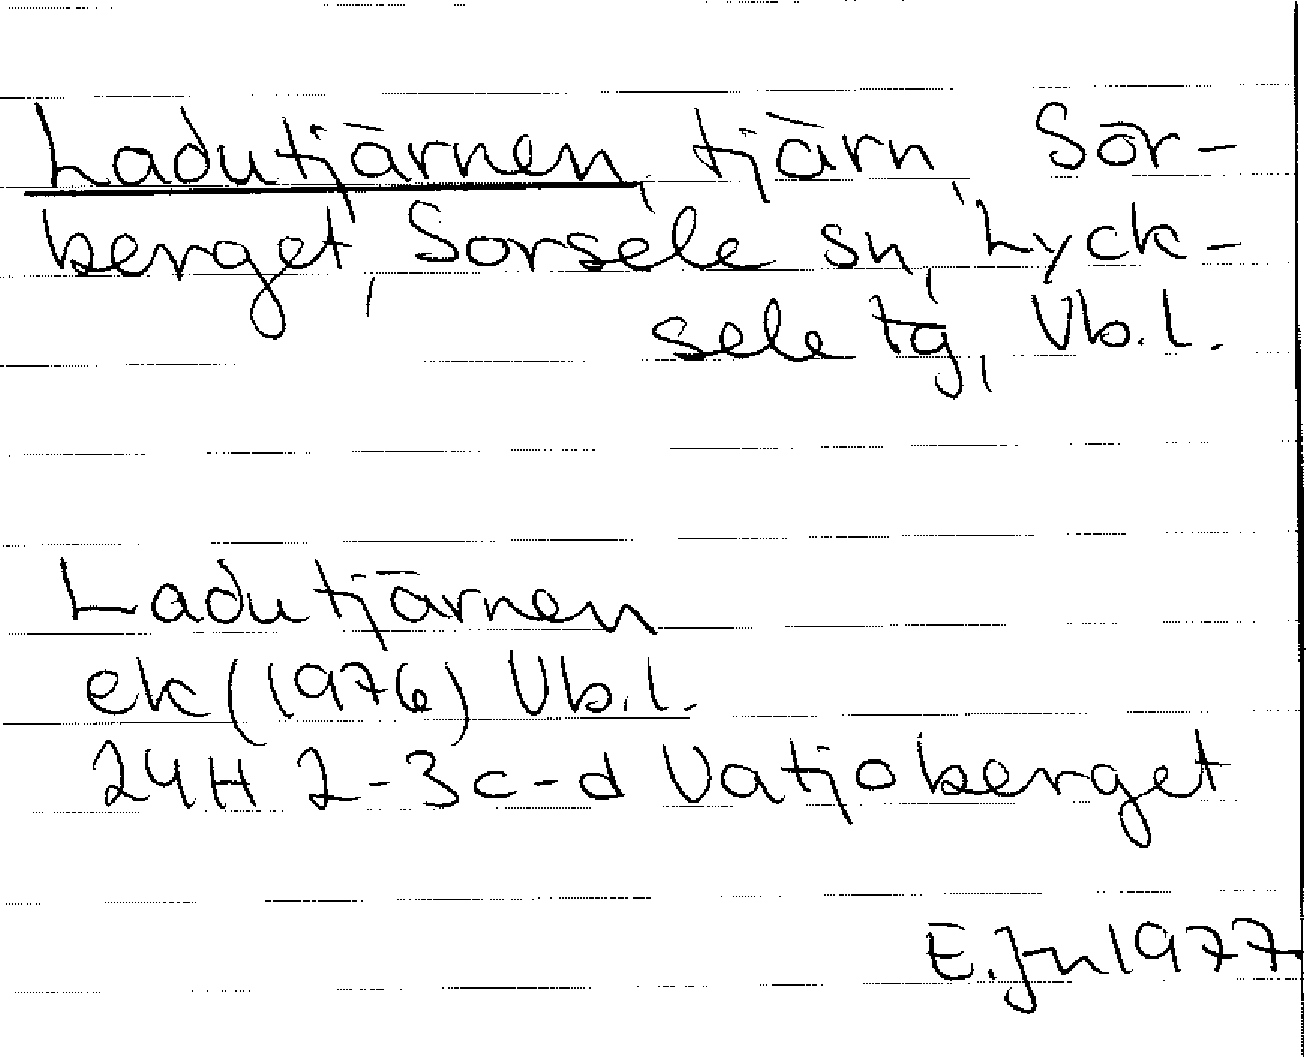 Ladutjärnen, tjärn, Sör-
berget, Sorsele sn, Lyck-
sele tg, Vb.l.
Ladutjärnen
ek (1976) Vb.l.
24H 2-3c-d Vatjoberget
E. Jn 1977